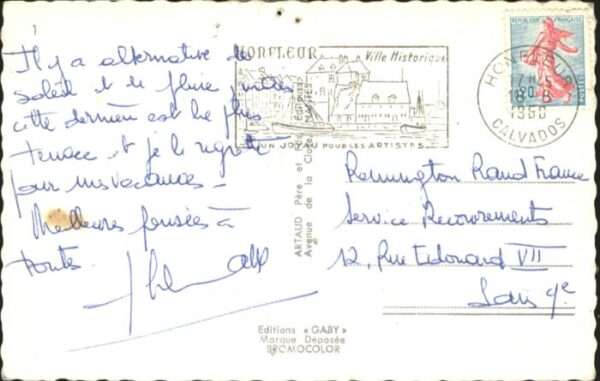 Il y a alternative de
soleil et de pluie, mais
cette dernière est la plus
tenace et je le regrette
pour mes vacances.
Meilleures pensées à
toutes.
HONFLEUR
Ville Historique
UN JOYAU POUR LES ARTISTES
REPUBLIQUE FRANÇAISE
HONFLEUR
1960
CALVADOS
ARTAUD Père et
Avenue de la
Remington Rand France
Service Recouvrements
12, Rue Edouard VII
Paris 9e
Editions « GABY »
Marque Déposée
BROMOCOLOR